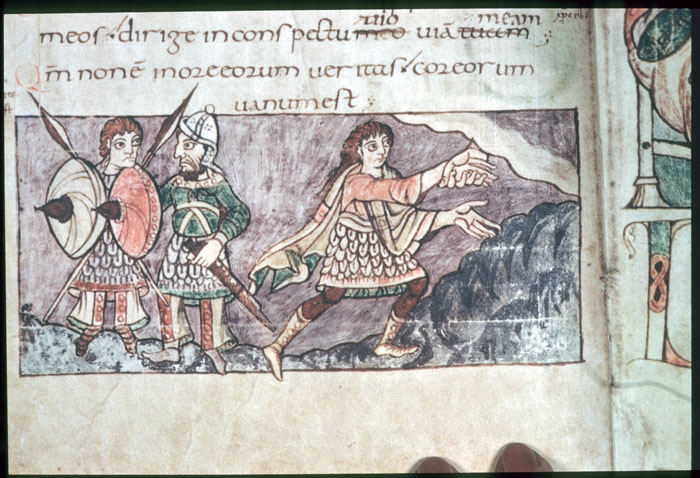 tuo meam
meos · dirige in conspectu meo uiā tuam
Qm̄ non ē in ore eorum ueritas · cor eorum
uanum est ;